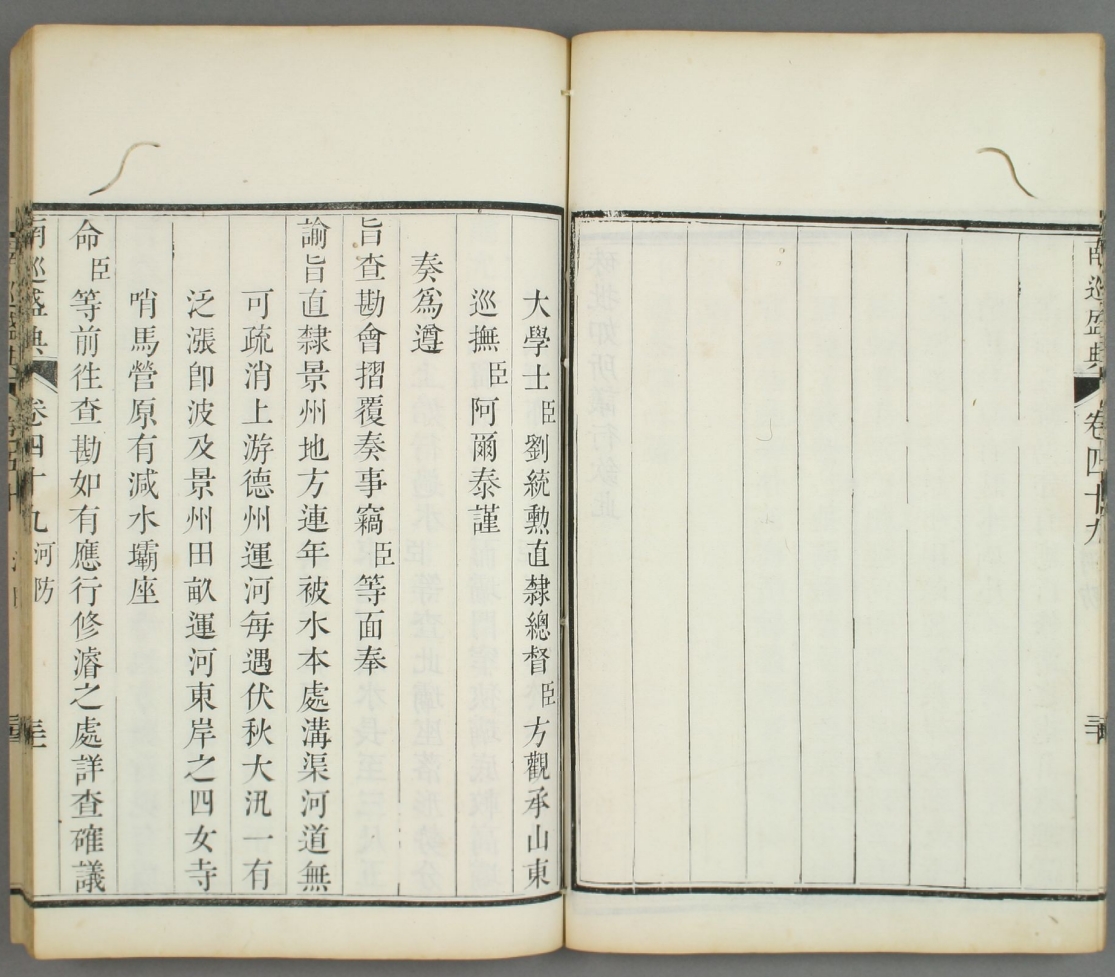 南巡盛典
卷四十九
大學士臣劉統勲直隸總督臣方觀承山東
巡撫臣阿爾泰謹
奏爲遵
旨查勘會摺覆奏事竊臣等面奉
諭旨直隸景州地方連年被水本處溝渠河道無
可疏消上游德州運河每遇伏秋大汛一有
泛漲卽波及景州田畝運河東岸之四女寺
哨馬營原有減水壩座
命臣等前徃查勘如有應行修濬之處詳查確議
南巡盛典 卷四十九 河防